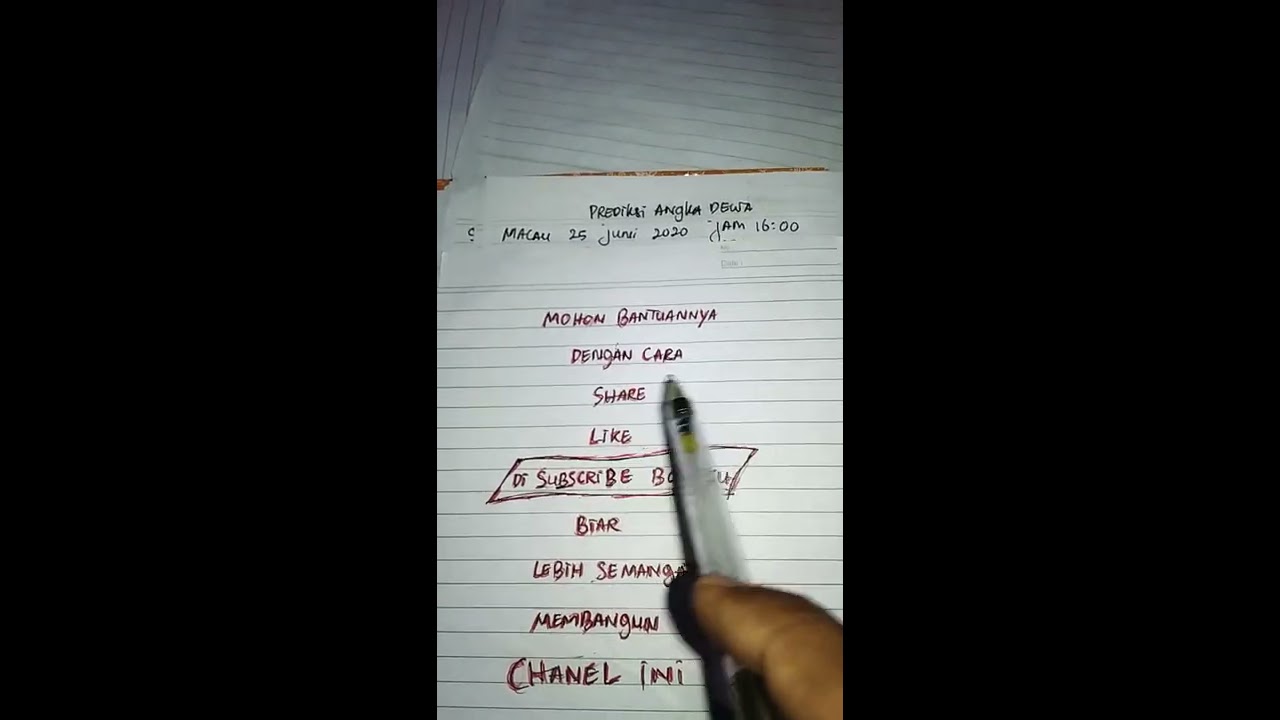 PREDIKSI ANGKA DEWA
MACAU 25 juni 2020 JAM 16:00
No
Date :
MOHON BANTUANNYA
DENGAN CARA
SHARE
LIKE
DI SUBSCRIBE
BIAR
LEBIH
MEMBANGUN
CHANEL INI